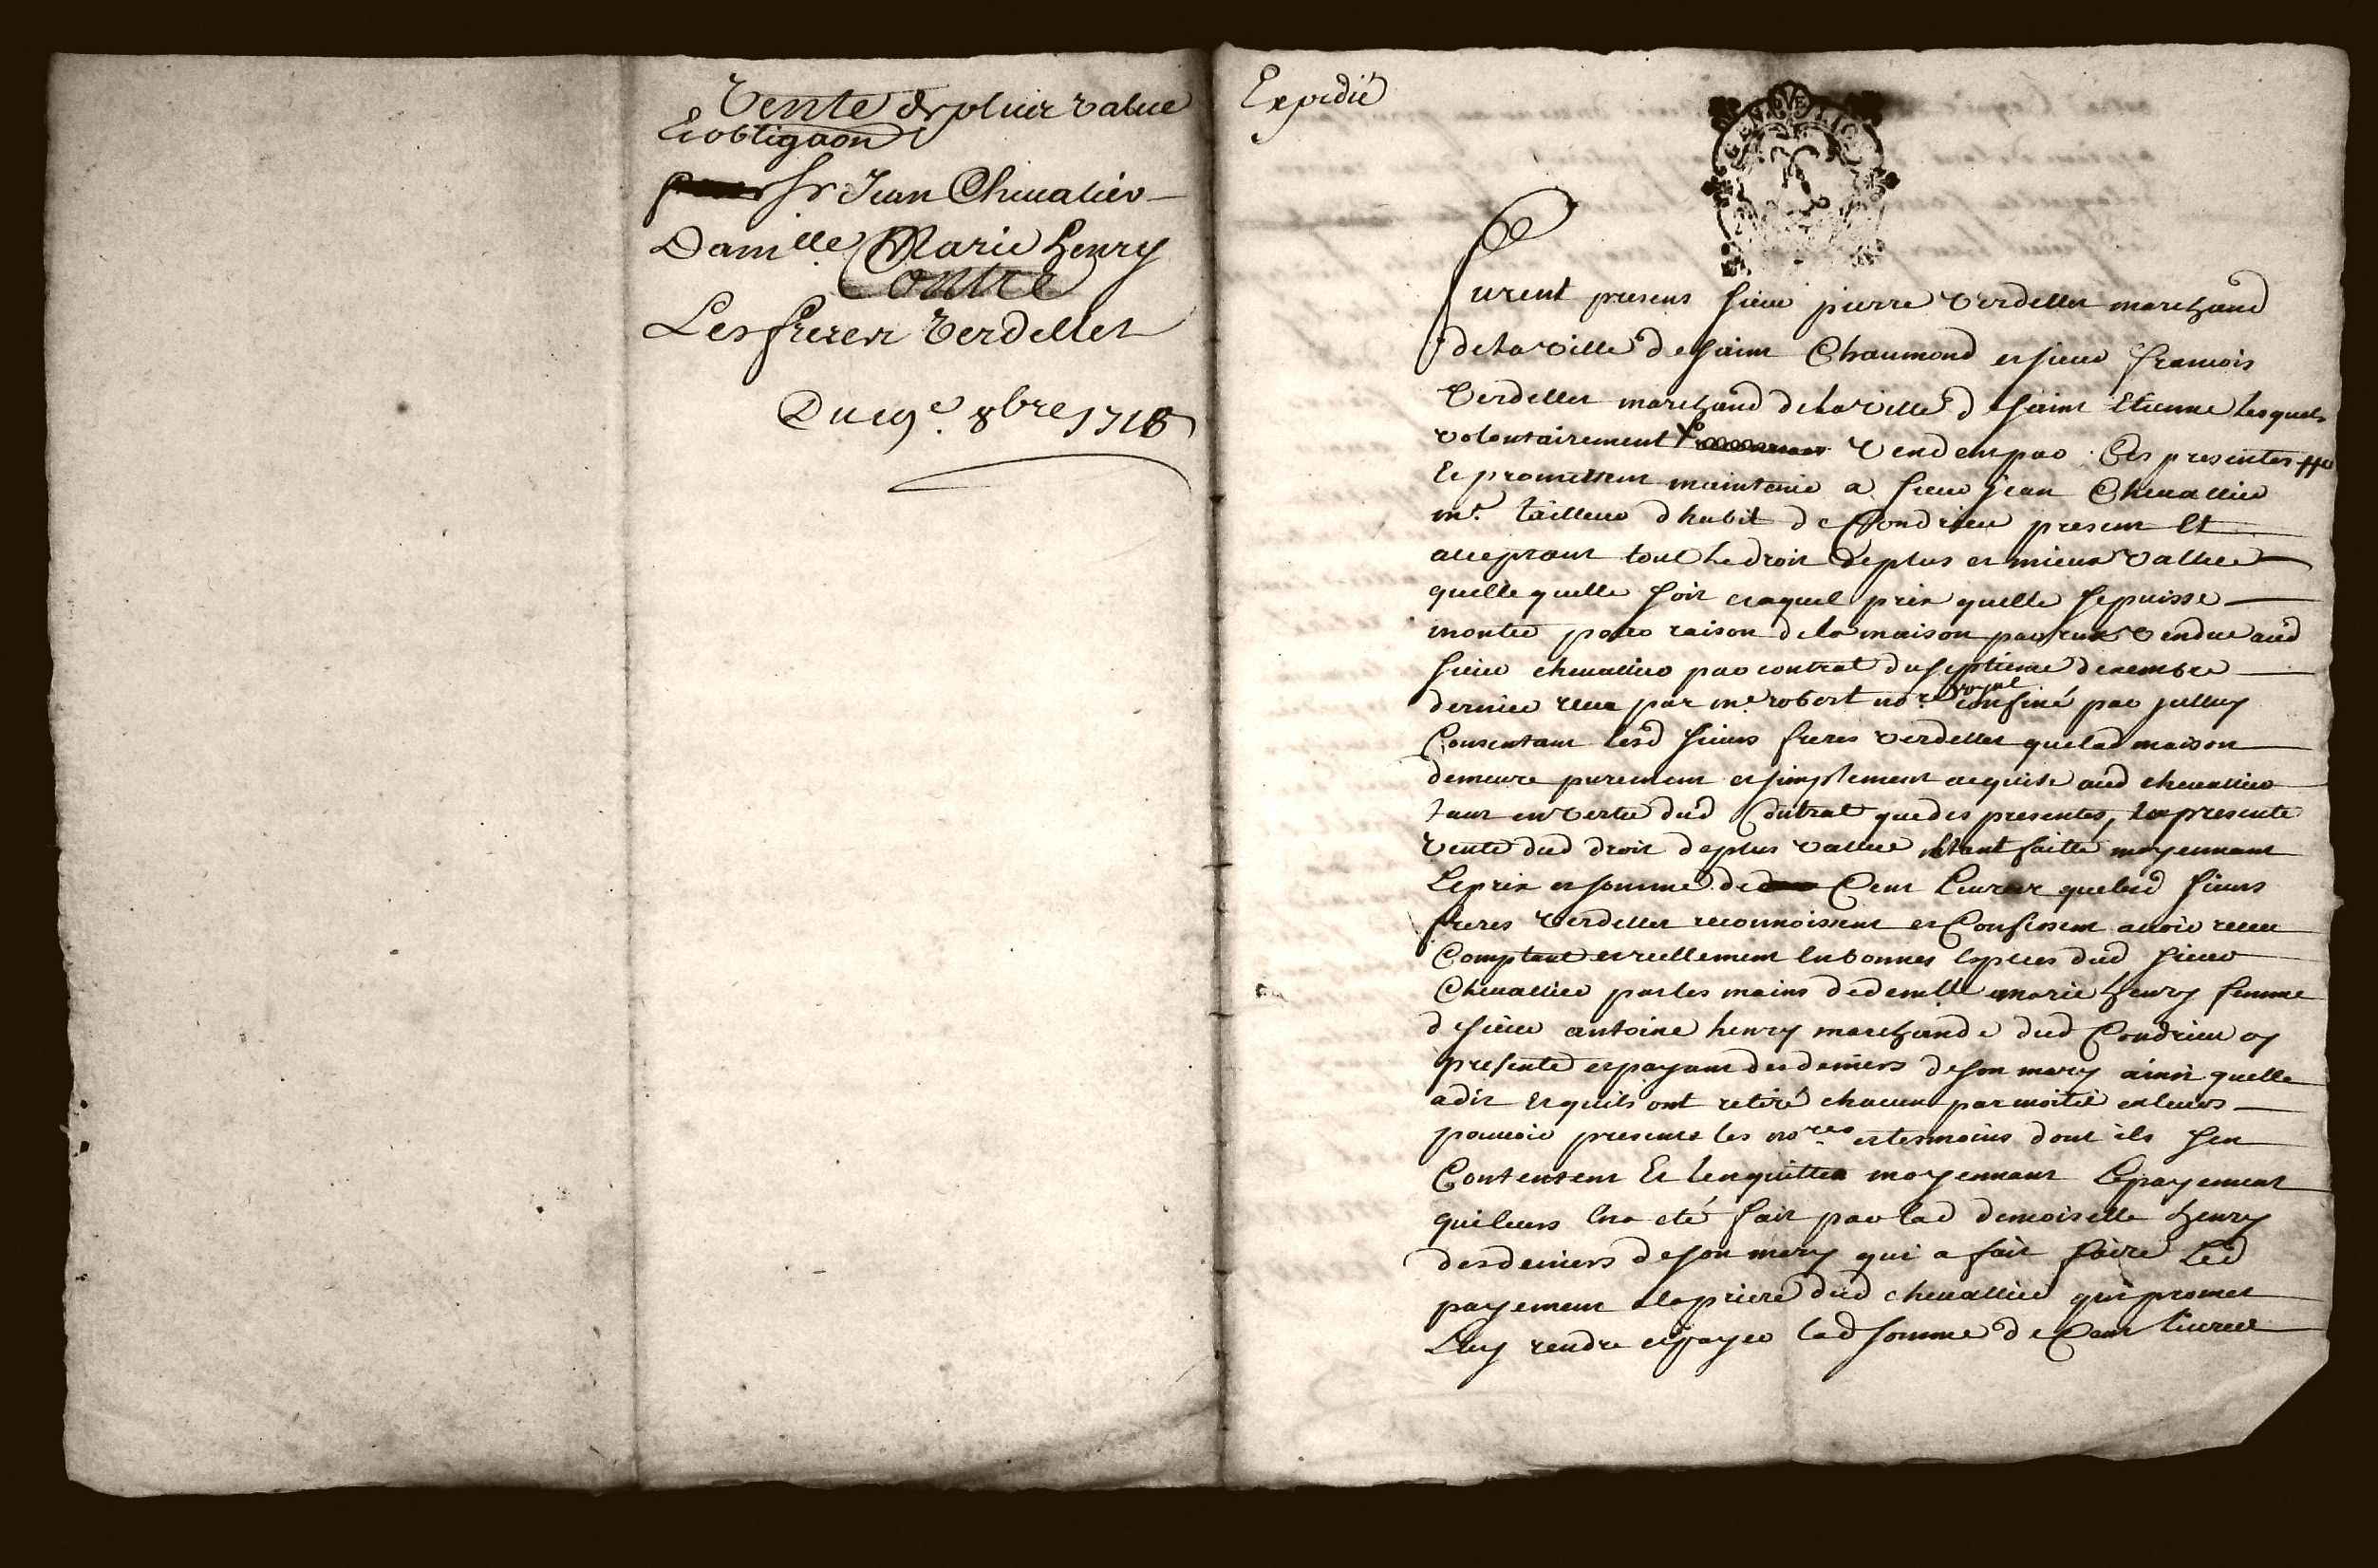 Vente de plus value
Et obligaon
Sr Jean Chevalier
Damlle Marie henry
Contre
Les freres Verdellet
Du 19e 8bre 1718
Expedié
furent presens sieur pierre Verdellet marchand
de la Ville de saint Chaumond et sieur francois
Verdellet marchand de la Ville de saint Etienne lesquels
volontairement Vendent par Ces presentes
Et promettent maintenir a sieur jean Chevallier
mre tailleur dhabit de Condrieu present Et
acceptant tout le droit de plus et mieux Vallue
quelle quelle soit et a quel prix quelle se puisse
monter pour raison de la maison par eux Vendue aud
sieur chevallier par contrat du septieme decembre
dernier receu par me robert nore royal confiné par julluy
Consentant lesd sieurs freres verdellet que lad maison
demeure purement et simplement acquise aud chevallier
tant en Vertu dud Contrat que des presentes, la presente
Vente dud droit de plus Vallue etant faitte moyennant
Le prix et somme de Cent Livres que lesd sieurs
freres Verdellet reconnoissent et Confessent avoir receu
Comptant et reellement En bonnes Especes dud sieur
Chevallier par les mains de demlle marie henry femme
de sieur antoine henry marchand dud Condrieu ay
presente et payant des deniers de son mary ainsi quelle
a dit Et quils ont retiré chacun par moitié en leurs
pouvoir presents les nores et tesmoins dont ils sen
Contentent Et lenquittent moyennant Le payement
qui leurs En a eté fait par lad demoiselle henry
des deniers de son mary qui a fait faire Led
payement a la priere dud chevallier qui promet
Luy rendre et payer lad somme de Cent livres